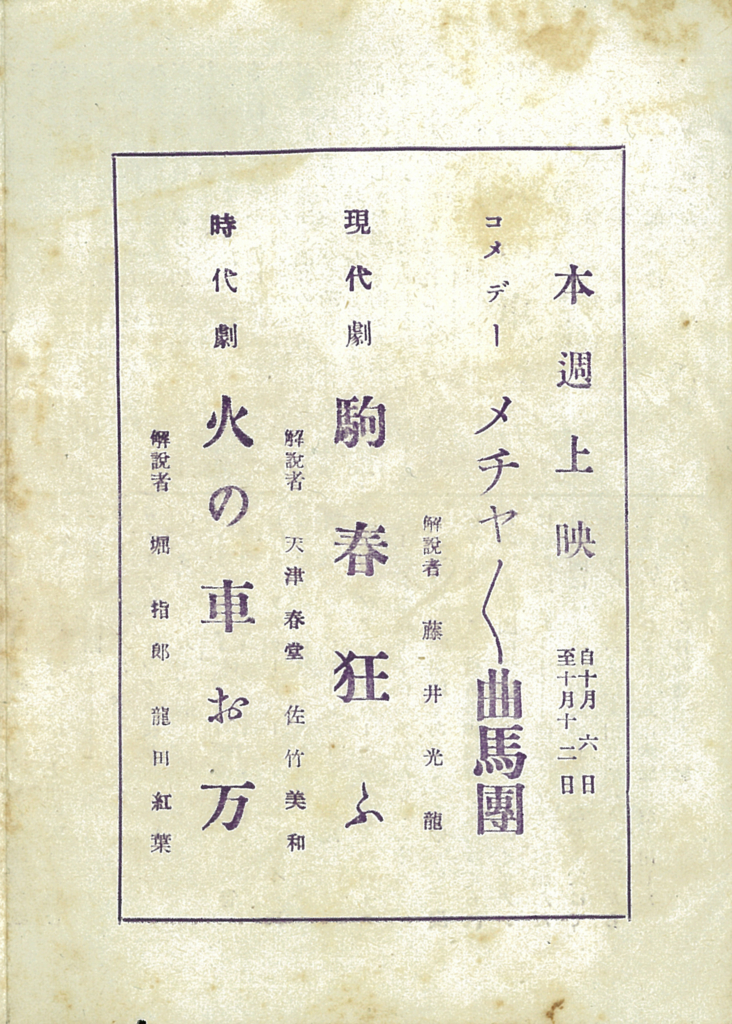 本週上映
自十月六日
至十月十二日
コメデー メチャ〱曲馬團
解説者 藤井光龍
現代劇 駒春狂ふ
解説者 天津春堂 佐竹美和
時代劇 火の車お万
解説者 堀指郎 龍田紅葉